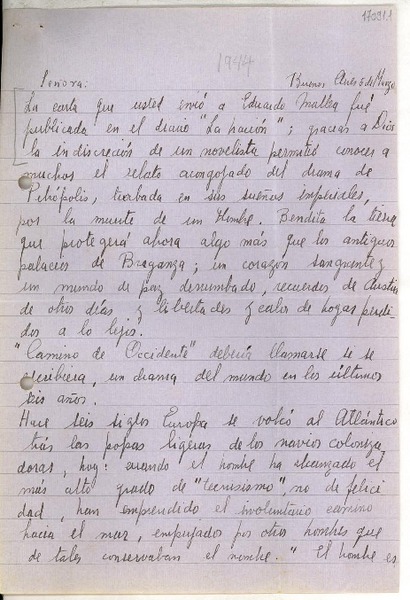 1944
Señora: Buenos Aires 5 de Marzo
La carta que usted envió a Eduardo Mallea fué
publicada en el diario "La nación"; gracias a Dios
la indiscreción de un novelista permitió conocer a
muchos el relato acongojado del drama de
Petrópolis, turbada en sus sueños imperiales,
por la muerte de un Hombre. Bendita la tierra
que protegerá ahora algo más que los antiguos
palacios de Braganza; un corazón sangrante y
un mundo de paz derrumbado, recuerdos de Austria
de otros días y libertades y calor de hogar perdi-
dos a lo lejos.
"Camino de Occidente" debería llamarse si se
escribiera, un drama del mundo en los últimos
seis años.
Hace seis siglos Europa se volcó al Atlántico
trás las popas ligeras de los navíos coloniza
doras, hoy: cuando el hombre ha alcanzado el
más alto grado de "tecnicismo" no de felici
dad, han emprendido el involuntario camino
hacia el mar, empujados por otros hombres que
de tales conservaban el nombre. "El hombre es